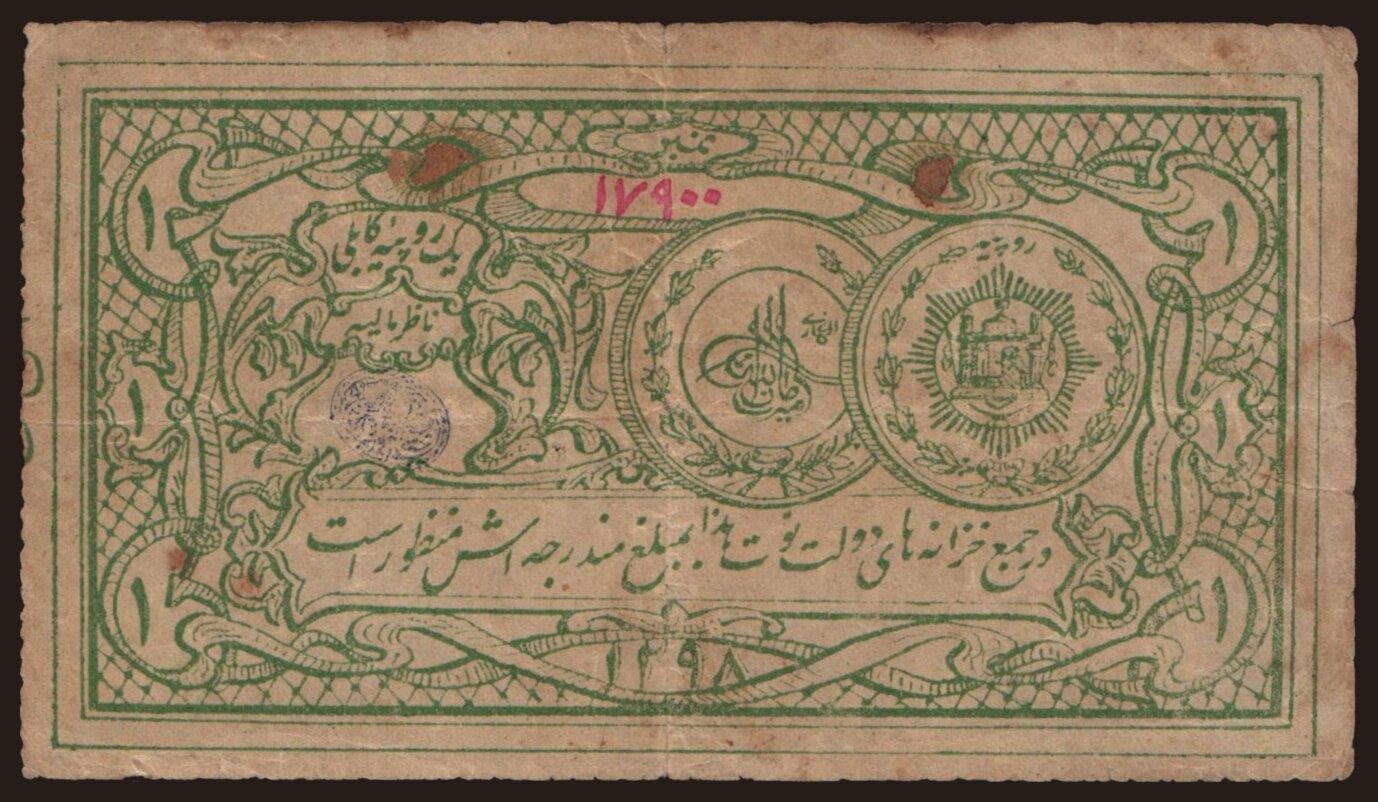 نمبر
۱۷۹۰۰
۱
۱
یک روپیه کابلی
روپیه
ناظر مالیه
۱
۱
در جمع خزانه های دولت نوت هذا بمبلغ مندرجه اش منظور است
۱
۱
۱۲۹۸